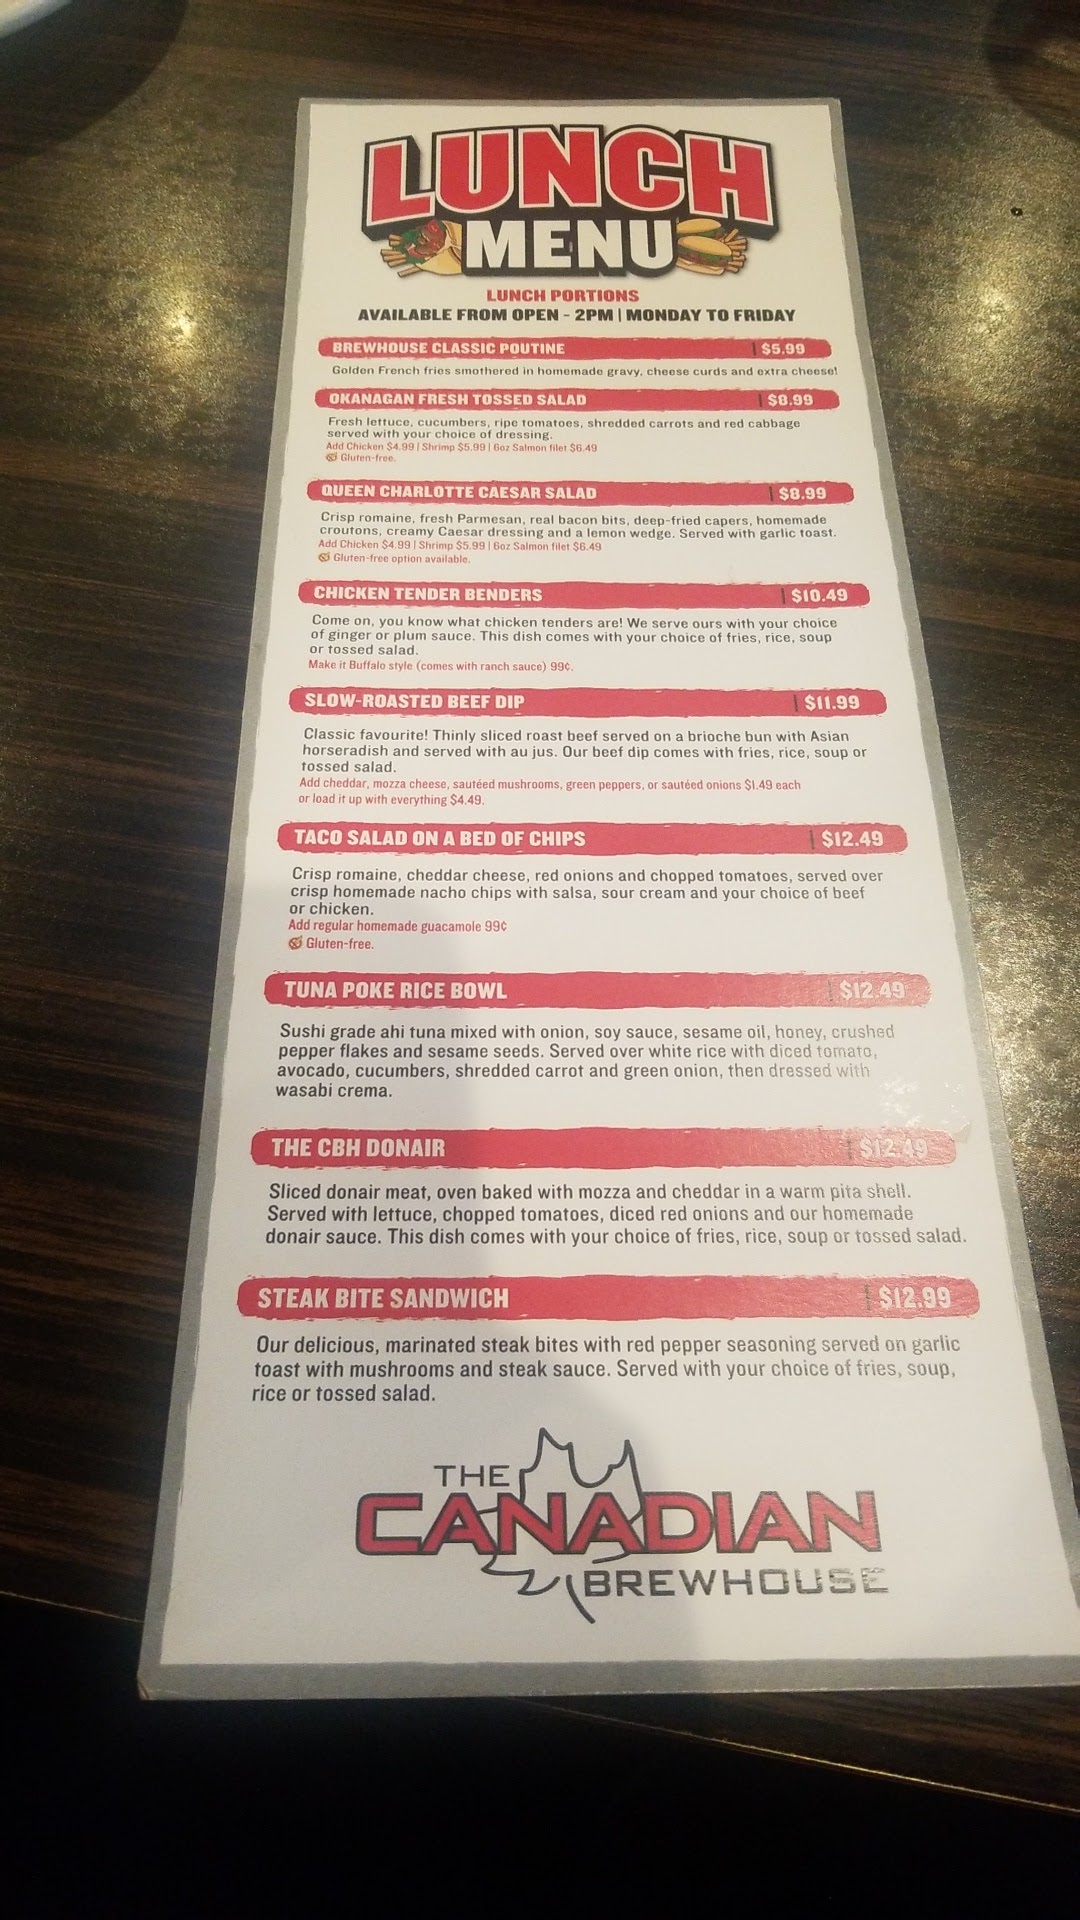 LUNCH
MENU
LUNCH PORTIONS
AVAILABLE FROM OPEN - 2PM | MONDAY TO FRIDAY
BREWHOUSE CLASSIC POUTINE | $5.99
Golden French fries smothered in homemade gravy, cheese curds and extra cheese!
OKANAGAN FRESH TOSSED SALAD | $8.99
Fresh lettuce, cucumbers, ripe tomatoes, shredded carrots and red cabbage
served with your choice of dressing.
Add Chicken $4.99 | Shrimp $5.99 | 6oz Salmon filet $6.49
Gluten-free.
QUEEN CHARLOTTE CAESAR SALAD | $8.99
Crisp romaine, fresh Parmesan, real bacon bits, deep-fried capers, homemade
croutons, creamy Caesar dressing and a lemon wedge. Served with garlic toast.
Add Chicken $4.99 | Shrimp $5.99 | 6oz Salmon filet $6.49
Gluten-free option available.
CHICKEN TENDER BENDERS | $10.49
Come on, you know what chicken tenders are! We serve ours with your choice
of ginger or plum sauce. This dish comes with your choice of fries, rice, soup
or tossed salad.
Make it Buffalo style (comes with ranch sauce) 99¢.
SLOW-ROASTED BEEF DIP | $11.99
Classic favourite! Thinly sliced roast beef served on a brioche bun with Asian
horseradish and served with au jus. Our beef dip comes with fries, rice, soup or
tossed salad.
Add cheddar, mozza cheese, sautéed mushrooms, green peppers, or sautéed onions $1.49 each
or load it up with everything $4.49.
TACO SALAD ON A BED OF CHIPS | $12.49
Crisp romaine, cheddar cheese, red onions and chopped tomatoes, served over
crisp homemade nacho chips with salsa, sour cream and your choice of beef
or chicken.
Add regular homemade guacamole 99¢
Gluten-free.
TUNA POKE RICE BOWL | $12.49
Sushi grade ahi tuna mixed with onion, soy sauce, sesame oil, honey, crushed
pepper flakes and sesame seeds. Served over white rice with diced tomato,
avocado, cucumbers, shredded carrot and green onion, then dressed with
wasabi crema.
THE CBH DONAIR | $12.49
Sliced donair meat, oven baked with mozza and cheddar in a warm pita shell.
Served with lettuce, chopped tomatoes, diced red onions and our homemade
donair sauce. This dish comes with your choice of fries, rice, soup or tossed salad.
STEAK BITE SANDWICH | $12.99
Our delicious, marinated steak bites with red pepper seasoning served on garlic
toast with mushrooms and steak sauce. Served with your choice of fries, soup,
rice or tossed salad.
THE
CANADIAN
BREWHOUSE